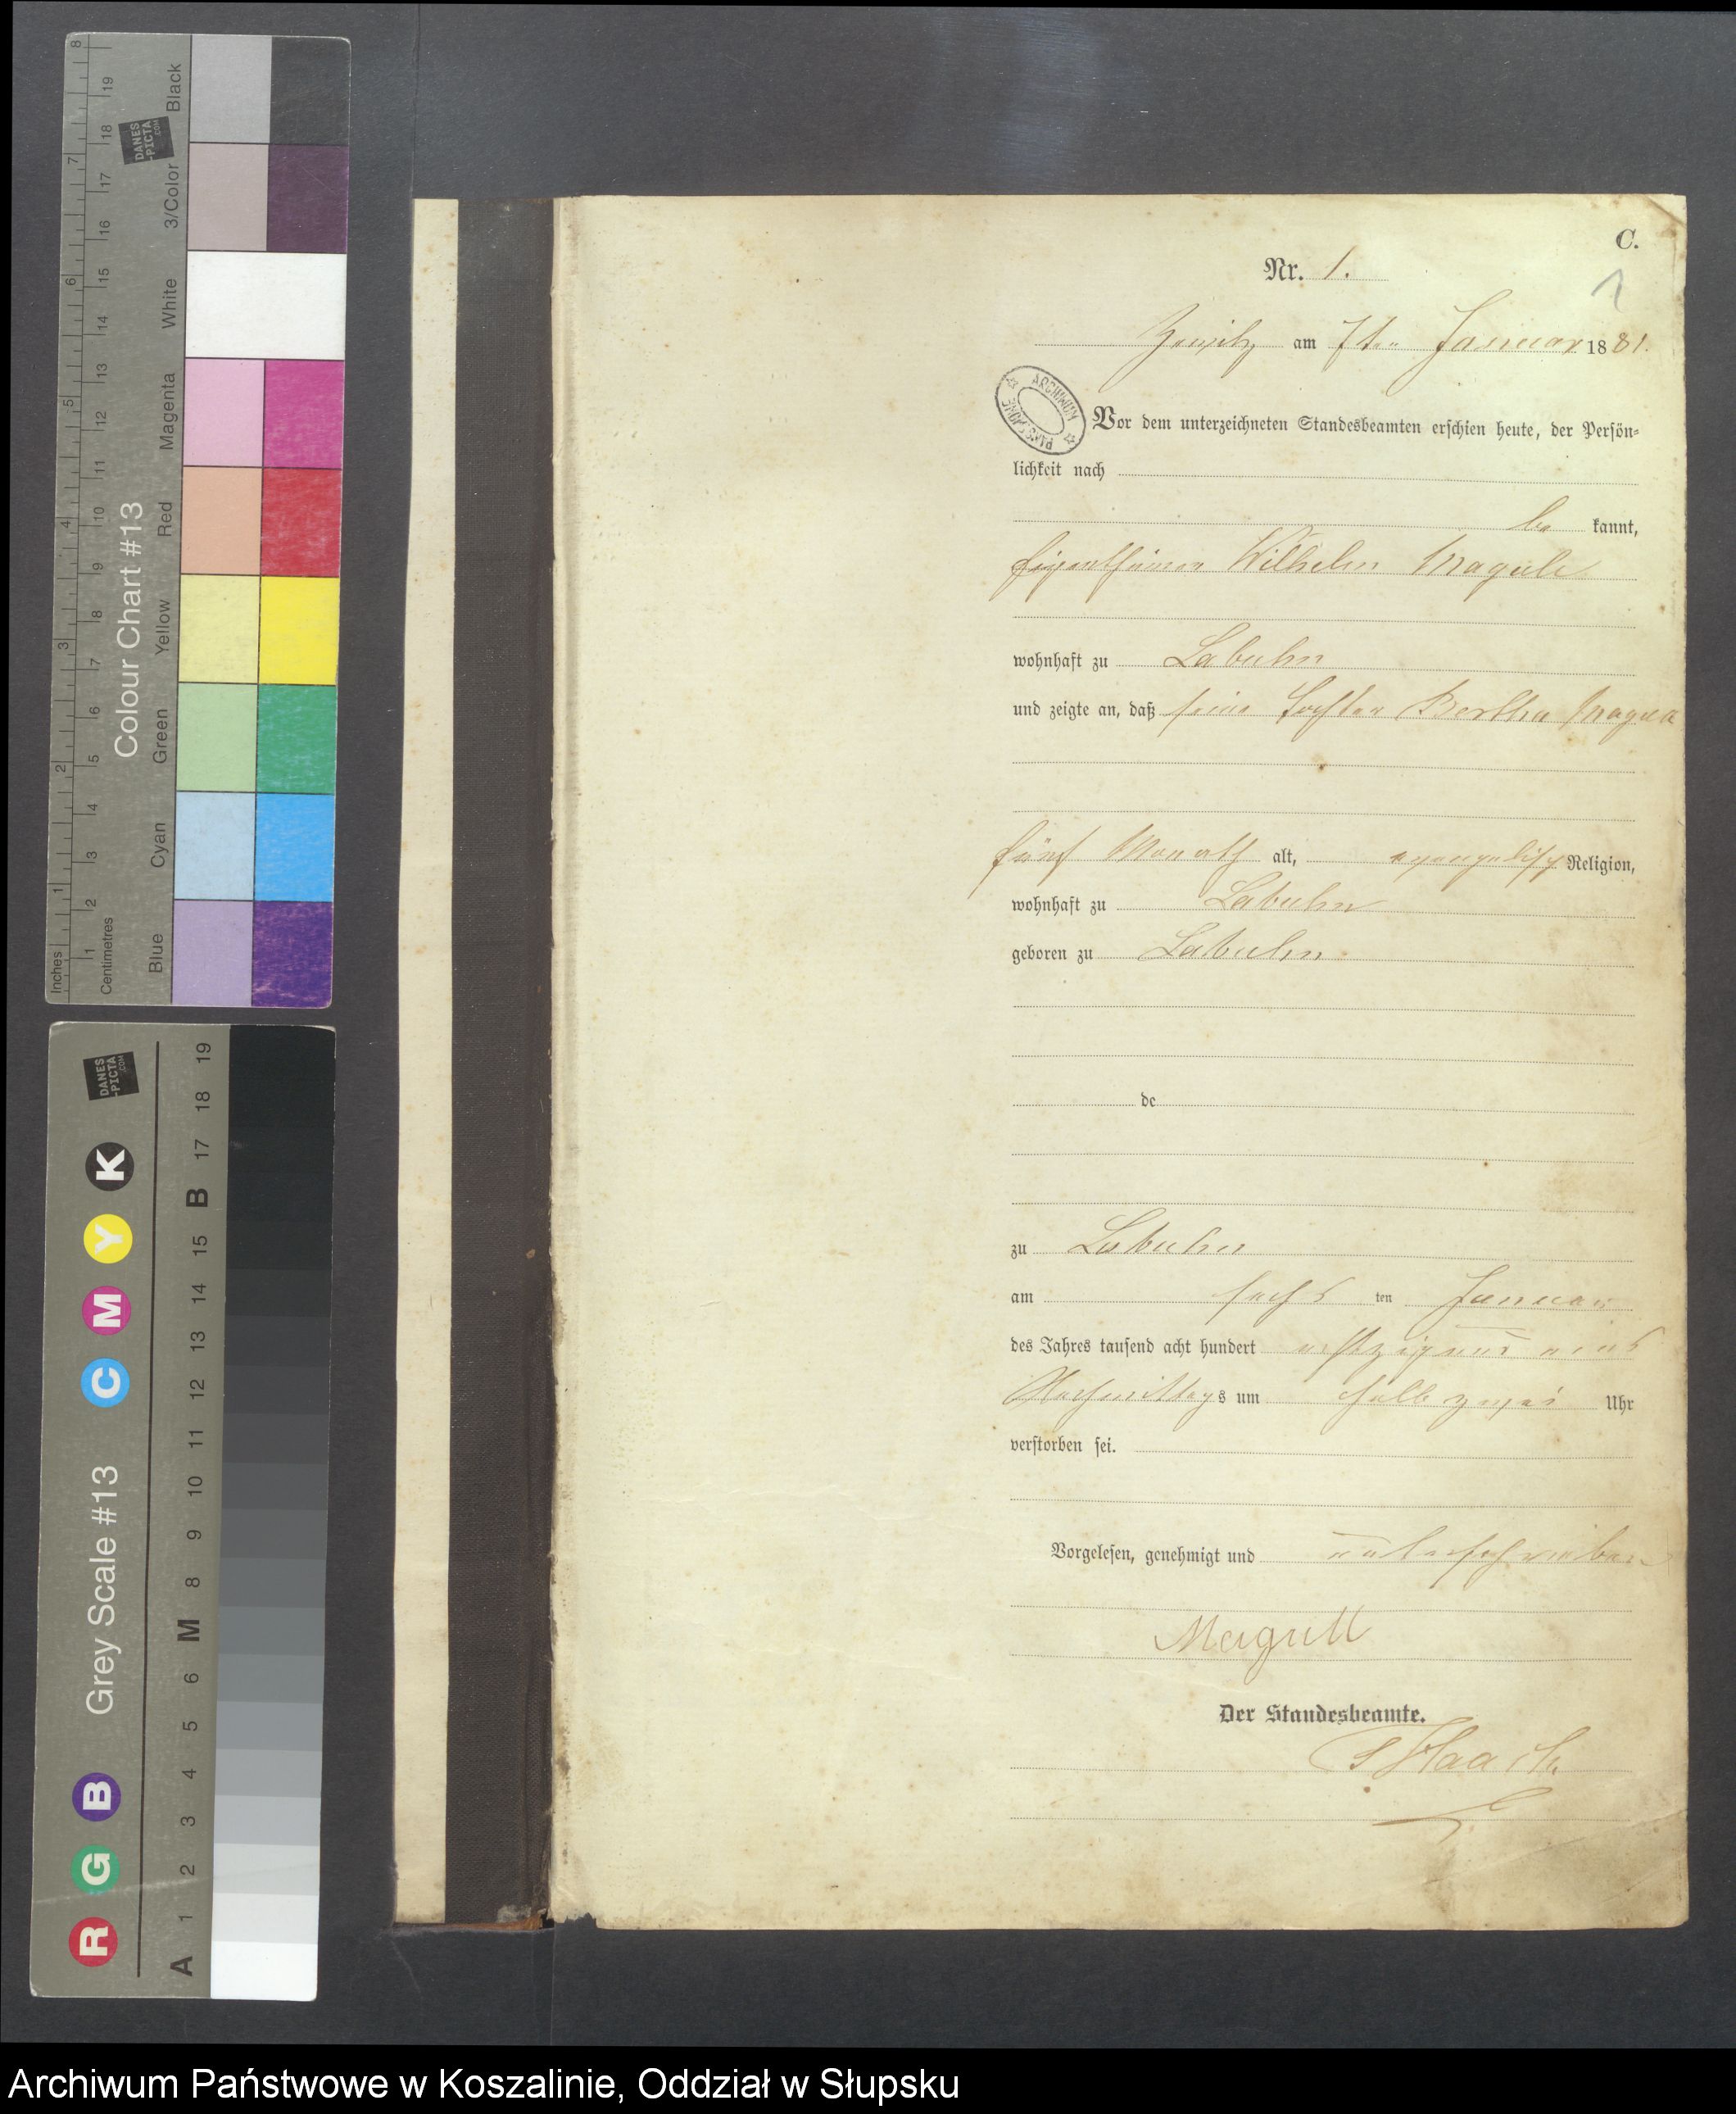 C.
Nr. 1.
1
Zewitz am 7ten Januar 1881.
ARCHIWUM PAŃSTWOWE
Vor dem unterzeichneten Standesbeamten erschien heute, der Persön-
lichkeit nach
be kannt,
Eigenthümer Wilhelm Magull
wohnhaft zu Labuhn
und zeigte an, daß seine Tochter Bertha
fünf Monath alt, evangelisch Religion,
wohnhaft zu Labuhn
geboren zu Labuhn
de
zu Labuhn
am sechs ten Januar
des Jahres tausend acht hundert achtzig und eins
Nachmittags um halb zwei Uhr
verstorben sei.
Vorgelesen, genehmigt und unterschrieben
Magull
Der Standesbeamte.
Haack
Colour Chart #13
Black
3/Color
White
Magenta
Red
Yellow
Green
Cyan
Blue
Inches 1 2 3 4 5 6 7 8
Centimetres 1 2 3 4 5 6 7 8 9 10 11 12 13 14 15 16 17 18 19
DANES
-PICTA
.COM
Grey Scale #13
R G B C M Y K
A 1 2 3 4 5 6 M 8 9 10 11 12 13 14 15 B 17 18 19
DANES
-PICTA
.COM
Archiwum Państwowe w Koszalinie, Oddział w Słupsku